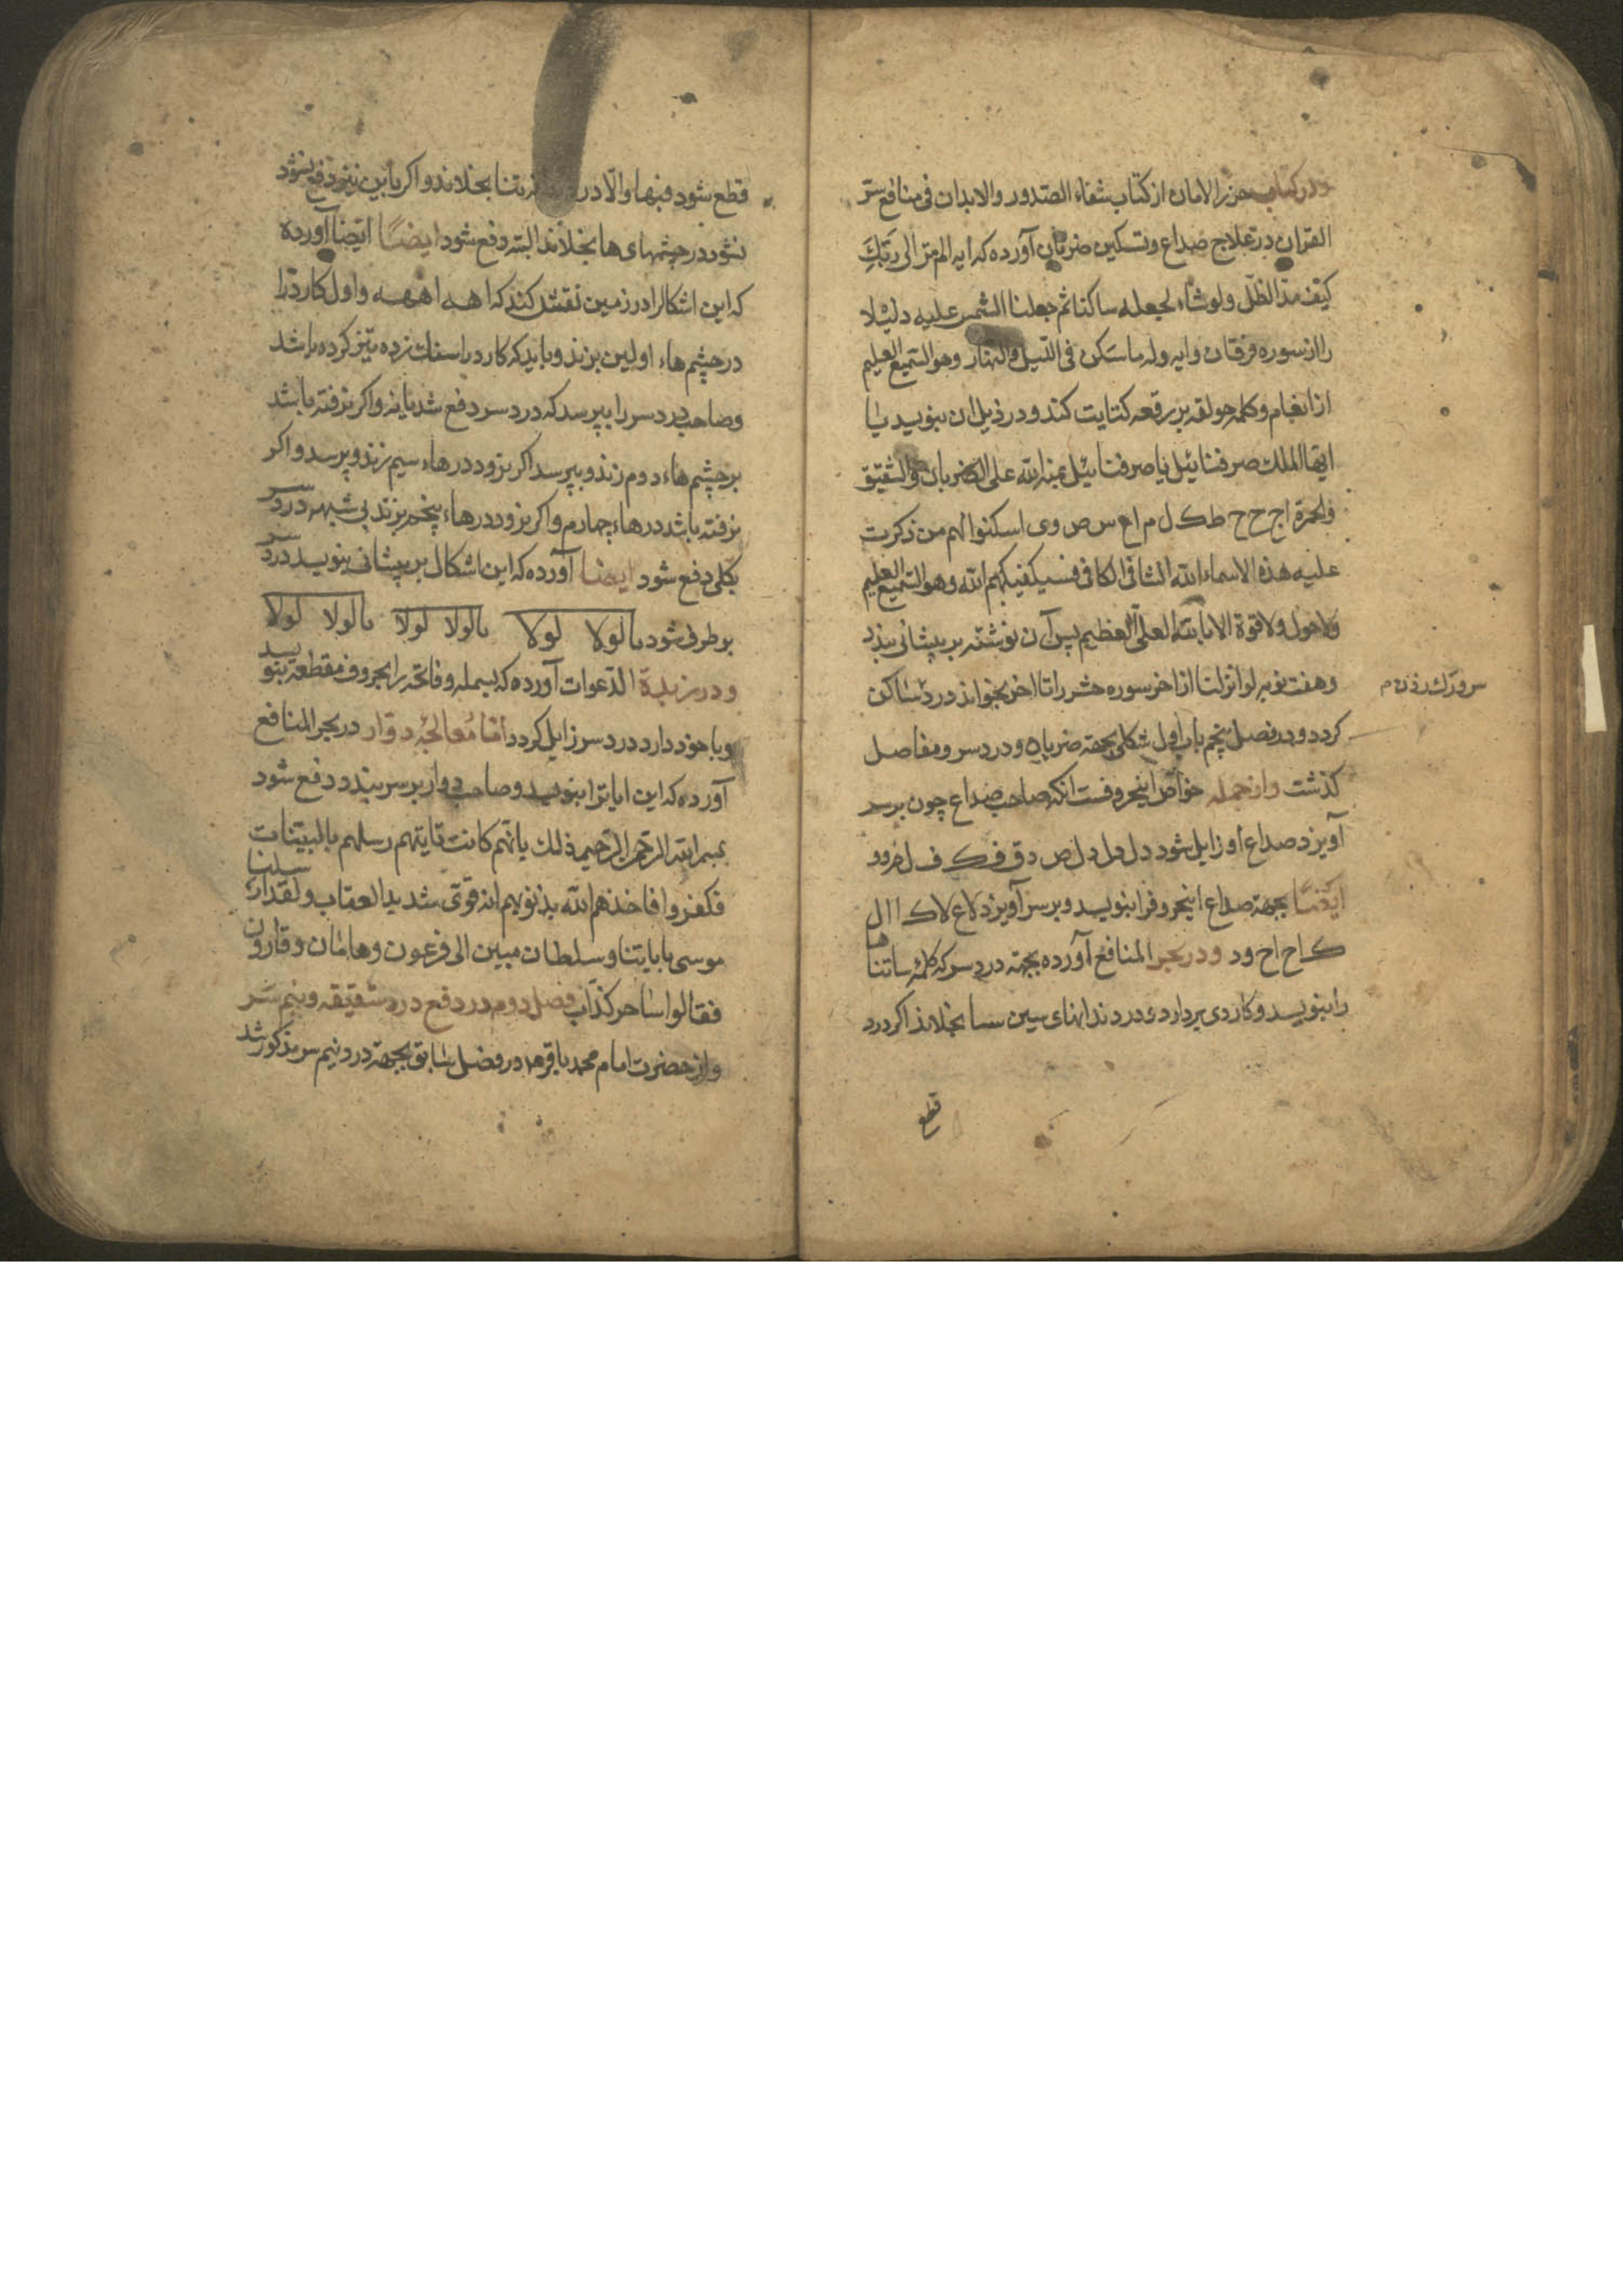 ودر کتاب حرز الامان از کتاب شفاء الصدور والابدان فی منافع سّر
القران در علاج صداع و تسکین ضربان آورده که ایه الم تر الی رَبّکَ
کیف مدّ الظّل ولو شاء لجعله ساکنا ثم جعلنا الشمس علیه دلیْلا
را از سوره فرقان وایه وله ما سکن فی اللّیل والنهار وهو السّمیع العلیم
از انعام وکلمه حولقه بر رقعه کتابت کند و در ذیل ان بنویسد یا
ایها الملک صرفنائیل یا صرفنائیل علی الضربان والشقیق
والحمرة اج ح ح ط ک ل م اع س ص وی اسکنوا الم من ذکرت
علیه هذه الاسماء الله الشافی الکافی فسیکفیکهم الله وهو السّمیع العلیم
ولاحول ولا قوة الا بالله العلیّ العظیم پس آن نوشته بر پیشانی بندد
وهفت نوبه لو انزلنا از اخر سوره حشر را تا اخر بخواند درد ساکن
کردد و در فصل پنجم باب اول شکلی بجهة ضربان و درد سر و مفاصل
کذشت وازجمله خواّص اینحروفست انکه صاحب صداع چون بر سر
آویزد صداع او زایل شود دل دل دل ص دق ف ک ف ل
ایضًا بجهة صداع اینحروفرا بنویسد وبر سر آویزد لاع لاک اال
ک اح اخ ود ودر بحر المنافع آورده بجهة درد سر که کلمه ساتنا
ها
را بنویسد وکاردی بردارد و در دندانهای سین سا بخلاند اکر درد
قطع
قطع شود فبها والّا در تنا بخلاند واکر باین نیز دفع نشود
نشود در چشمهای ها بخلاند البته دفع شود ایضًا ایضا آورده
که این اشکالرا در زمین نقش کند که اهه اههه واول کارد را
در چشم هاء اولین بزند وباید که کارد را سفان زده تیز کرده باشد
وصاحب درد سر را بپرسد که درد سر دفع شد یا نه واکر نرفته باشد
بر چشم هاء دوم زند و بپرسد اکر نرود در هاء سیم زند وپرسد واکر
نرفته باشد در هاء چهارم واکر نرود در هاء پنجم بزند بی شبهه درد سر
بکلی دفع شود ایضا آورده که این اشکال بر پیشانی بنویسد درد سر
برطرف شود یالولا لولا یالولا لولا یالولا لولا
ودر زبدة الدّعوات آورده که بسمله وفاتحه را بحروف مقطعه بنویسد
وبا خود دارد درد سر زایل کردد امّا مُعالجْه دوّار در بحر المنافع
آورده که این ایاترا بنویسد وصاحب دوار بر سر بندد دفع شود
بسم الله الرحمن الرحیم ذلک بانّهم کانت تاتیهم رسلهم بالبیّنات
فکفروا فاخذهم الله بذنوبهم انه قویّ شدید العقاب ولقد ارسلنا
موسی بایاتنا وسلطان مبین الی فرعون وهامان وقارون
فقالوا ساحر کذّاب فصل دوم در دفع درد شقیقه ونیم سَر
واز حضرت امام محمد باقر در فصل سابق بجهة درد نیم سر مذکور شد